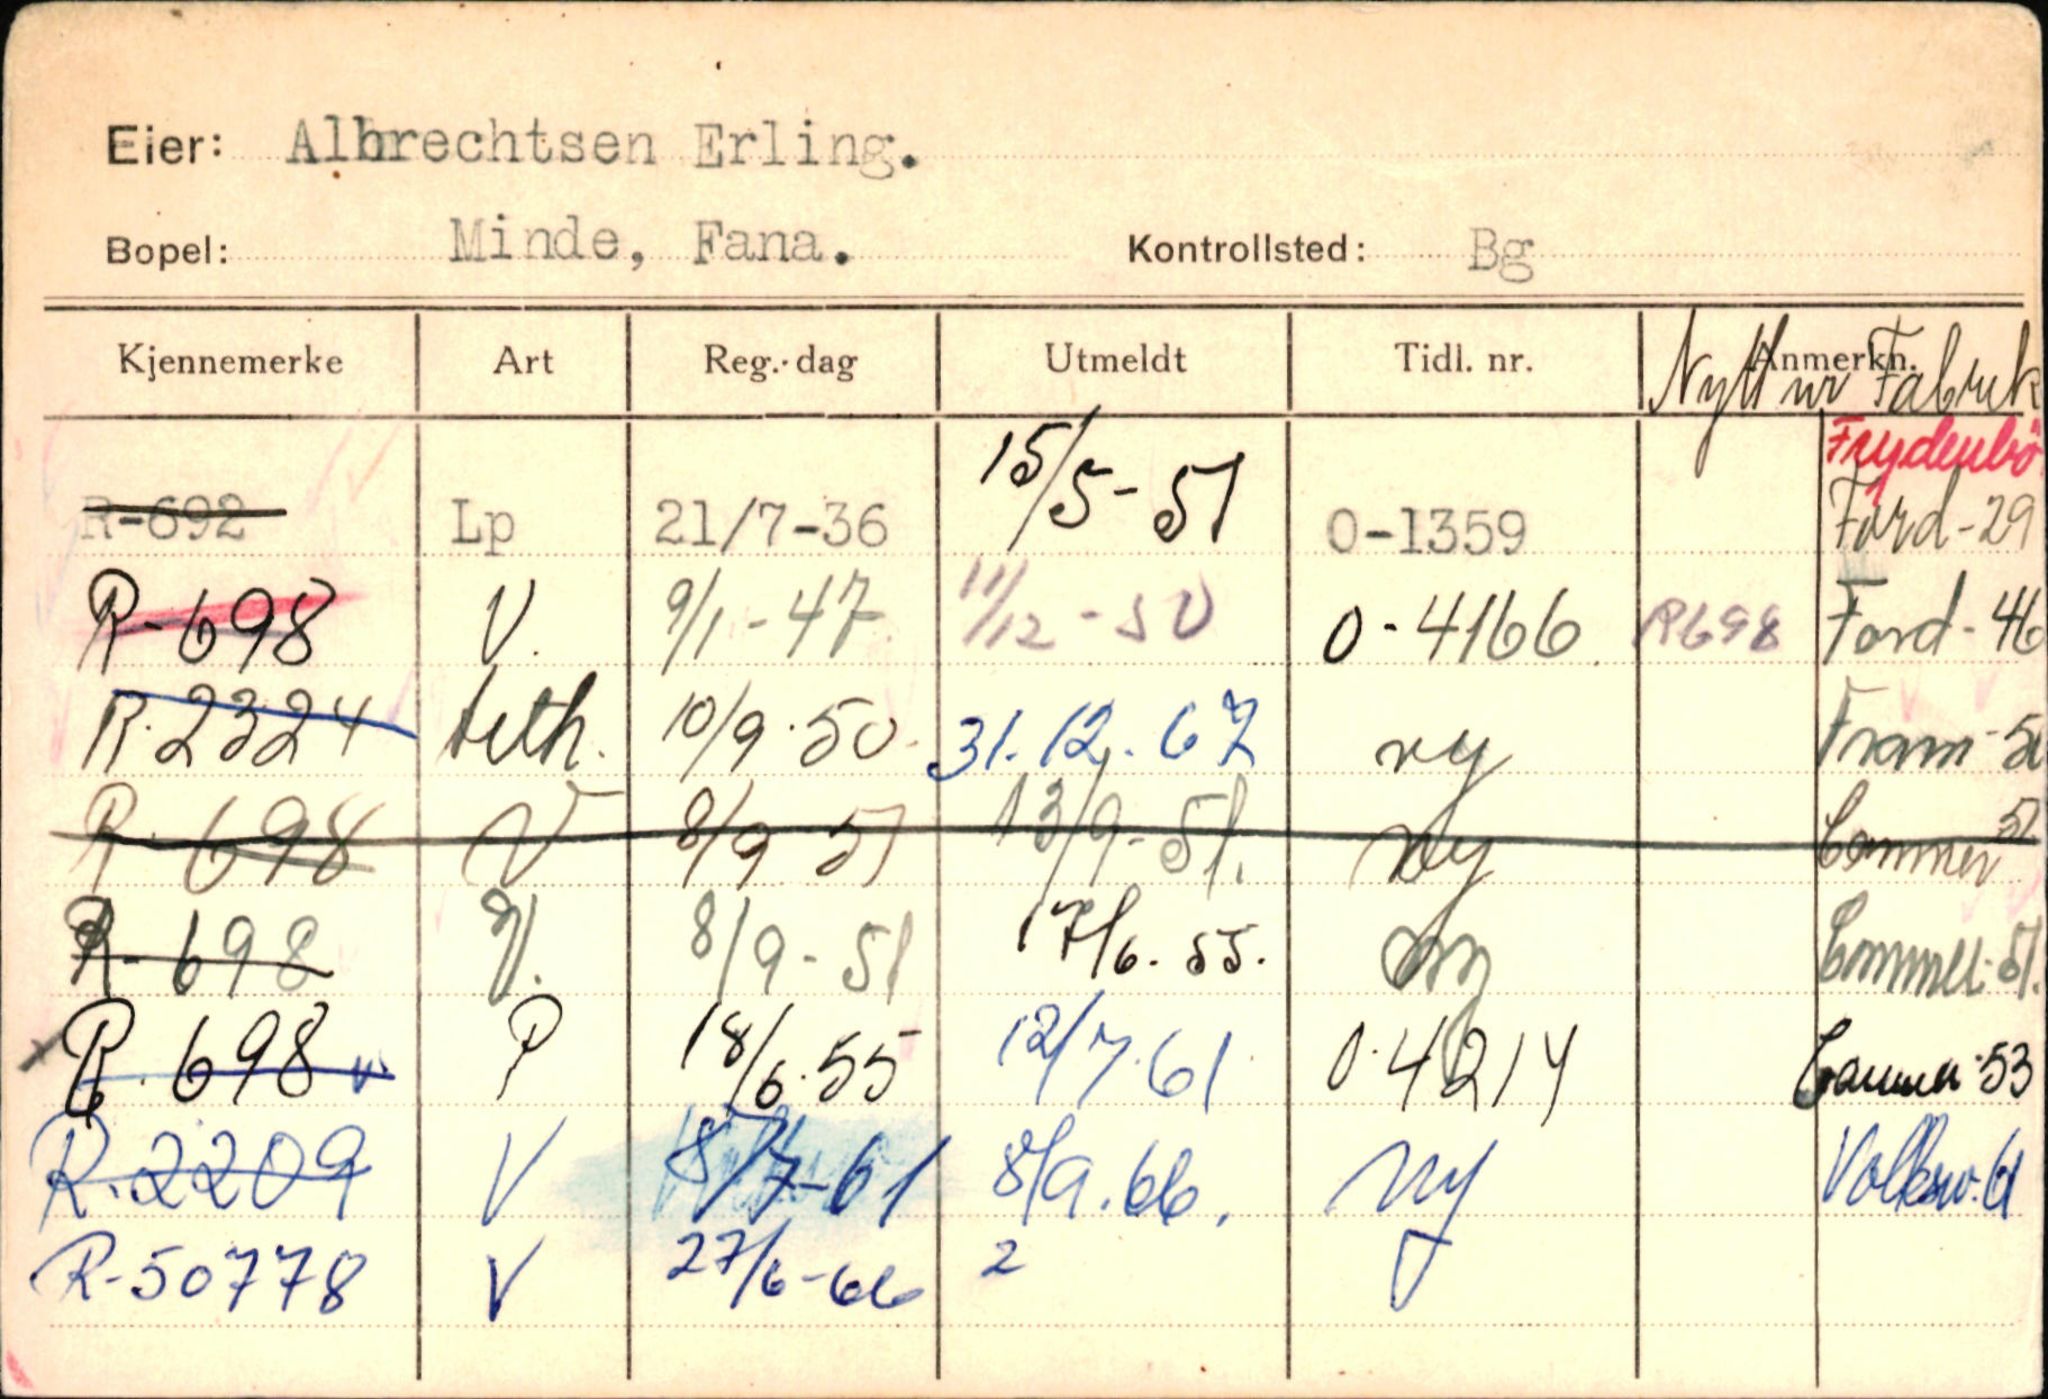 Eier: Albrechtsen Erling.
Bopel: Minde, Fana. Kontrollsted: Bg
Kjennemerke Art Reg.-dag Utmeldt Tidl. nr. Anmerkn.
Nytt nr Fabrik
Frydenbö
R-692 Lp 21/7-36 15/5-51 O-1359 Ford-29
R-698 V. 9/1-47 11/12-50 O-4166. R698 Ford-46
R.2324 10/9.50. 31.12.67 ny Fram-50
R.698 V 8/9 51 13/9-51. ny Commer 51
R-698 V. 8/9-51 17/6.55. ny Commer-51.
R.698 P 18/6.55 12/7.61 O.4214 Commer.53
R.2209 V 8/7-61 8/9.66. ny Volksw.61
R-50778 V 27/6-66 2